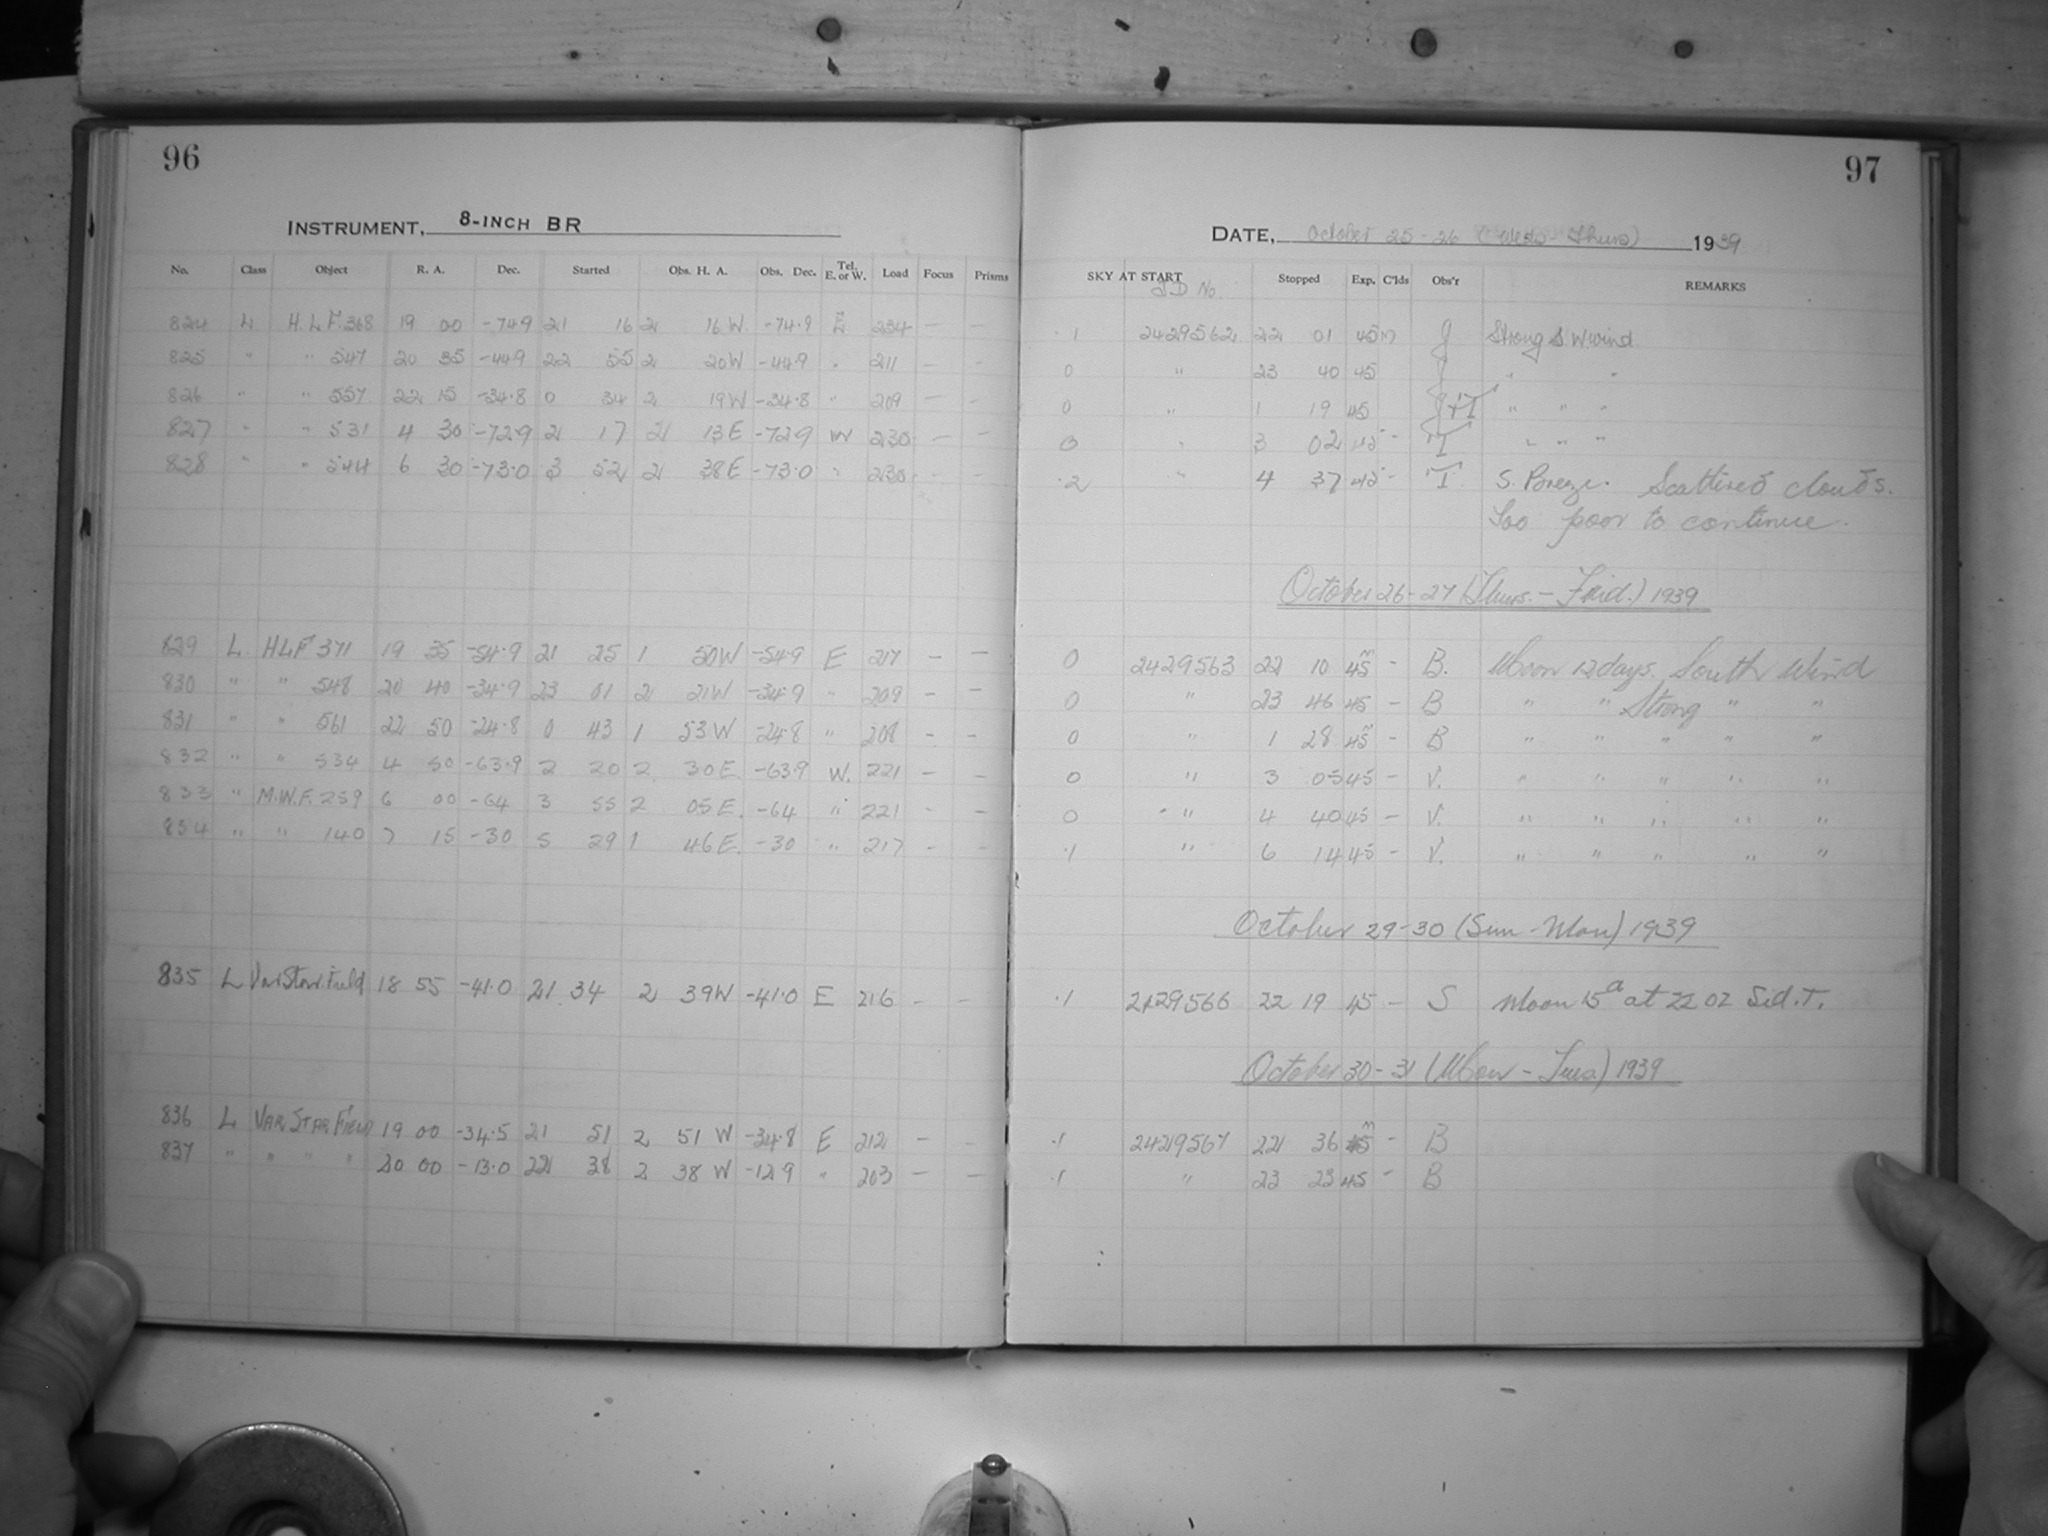 96
INSTRUMENT, 8-INCH BR
No. Class Object R. A. Dec. Started Obs. H. A. Obs. Dec. Tel. E. or W. Load Focus Prisms
824 L H.L.F. 368 19 00 -74.9 21 16 2 16 W. -74.9 E 234 — —
825 " " 547 20 35 -44.9 22 55 2 20W -44.9 " 211 — —
826 " " 557 22 15 -34.8 0 34 2 19W -34.8 " 209 — —
827 " " 531 4 30 -72.9 2 17 2 13E -72.9 W 230 — —
828 " " 544 6 30 -73.0 3 52 2 38E -73.0 " 230 — —
829 L HLF 371 19 35 -54.9 21 25 1 50W -54.9 E 217 — —
830 " " 548 20 40 -34.9 23 01 2 21W -34.9 " 209 — —
831 " " 561 22 50 -24.8 0 43 1 53W -24.8 " 208 - —
832 " " 534 4 50 -63.9 2 20 2 30E -63.9 W. 221 - —
833 " M.W.F. 259 6 00 -64 3 55 2 05E. -64 " 221 - —
834 " " 140 7 15 -30 5 29 1 46E. -30 " 217 - —
835 L Var Star Field 18 55 -41.0 21 34 2 39W -41.0 E 216 - —
836 L VAR STAR FIELD 19 00 -34.5 21 51 2 51 W -34.8 E 212 — —
837 " " " " 20 00 -13.0 22 38 2 38 W -12.9 " 203 — —
97
DATE, October 25-26 (Weds-Thurs) 1939
SKY AT START Stopped Exp. C'lds Obs'r REMARKS
J D No.
.1 2429562 22 01 45m J Strong S W wind
0 " 23 40 45 J " "
0 " 1 19 45 J+T " " "
0 " 3 02 45 - T " " "
.2 " 4 37 45 - T. S. Breeze. Scattered clouds.
Too poor to continue.
October 26-27 (Thurs.-Frid.) 1939
0 2429563 22 10 45m - B. Moon 12 days. South Wind
0 " 23 46 45 - B " " Strong " "
0 " 1 28 45m - B " " " " "
0 " 3 05 45 - V. " " " " "
0 " 4 40 45 - V. " " " " "
.1 " 6 14 45 - V. " " " " "
October 29-30 (Sun-Mon) 1939
.1 2429566 22 19 45 - S Moon 15d at 22 02 Sid. T.
October 30-31 (Mon-Tues) 1939
.1 2429567 22 36 45m - B
.1 " 23 23 45 - B